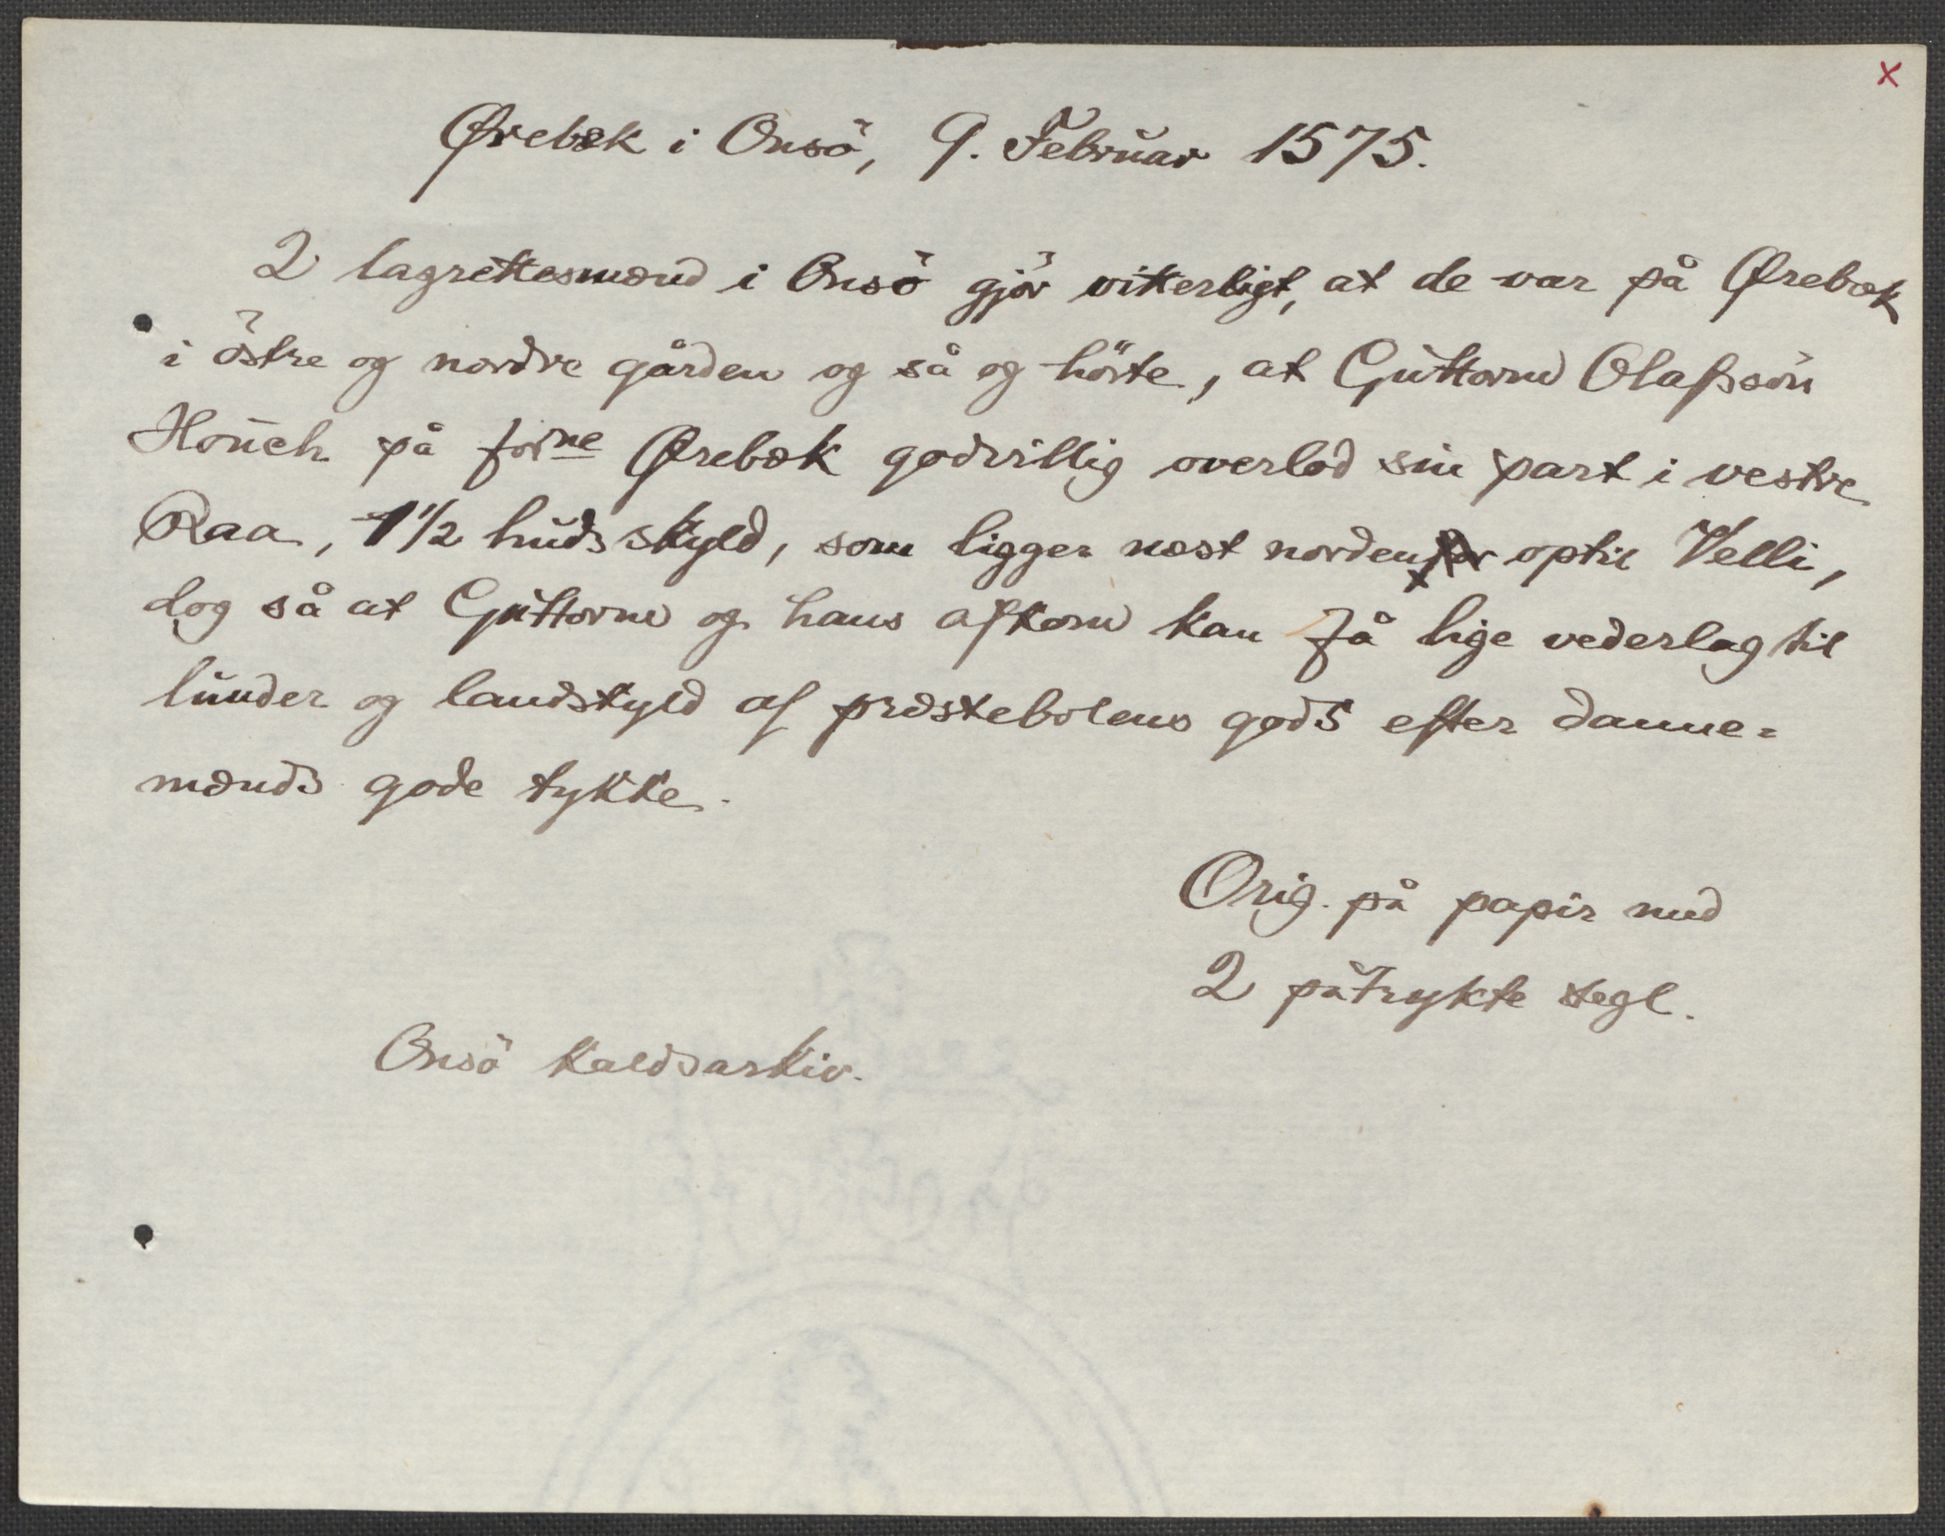 x
Ørebæk i Onsö, 9. Februar 1575.
2 lagrettesmænd i Onsö gjör vitterligt, at de var på Ørebæk
i östre og nordre gården og så og hörte, at Guttorm Olafssön
på forne Ørebæk godvillig overlod sin part i vestre
Raa, 1 1/2 huds skyld, som ligger næst norden optil Velli,
dog så at Guttorm og hans afkom kan få lige vederlag til
lunder og landskyld af præstebolens gods efter danne=
mænds gode tykke.
Orig. på papir med
2 påtrykte segl.
Onsö kaldsarkiv.